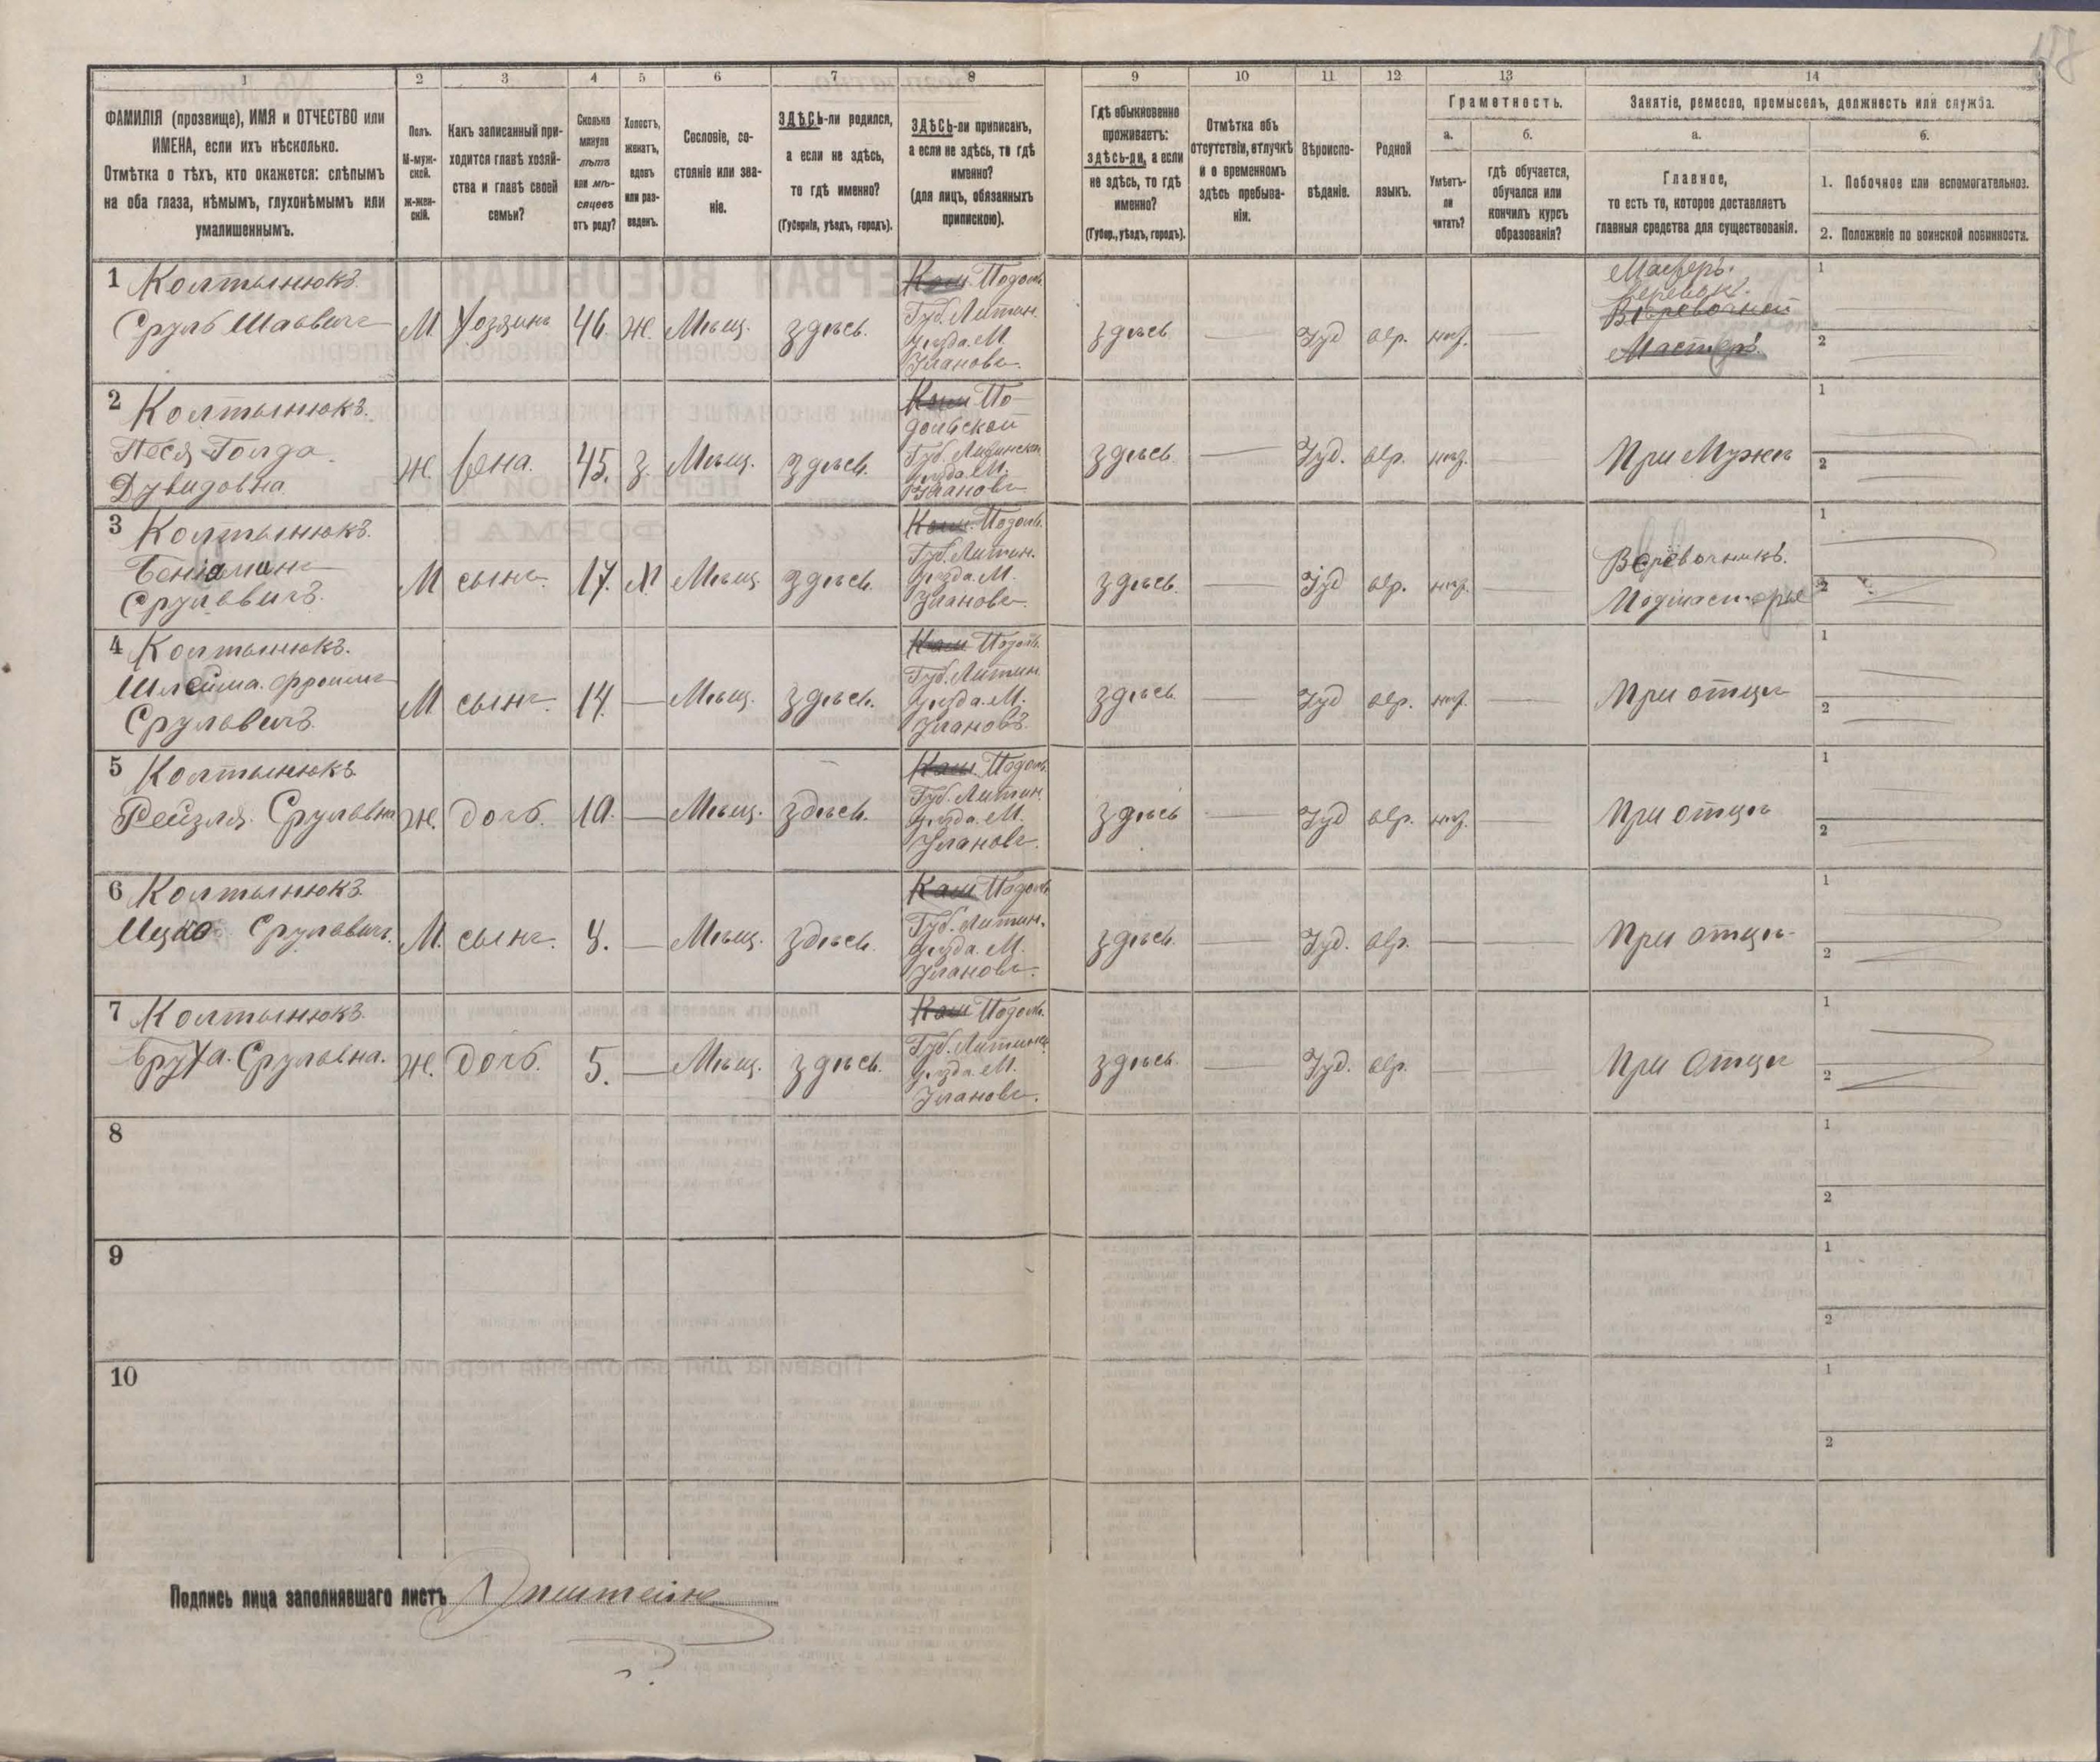 1 2 3 4 5 6 7 8 9 10 11 12 13 14
ФАМИЛІЯ (прозвище), ИМЯ и ОТЧЕСТВО или
ИМЕНА, если ихъ нѣсколько.
Отмѣтка о тѣхъ, кто окажется: слѣпымъ
на оба глаза, нѣмымъ, глухонѣмымъ или
умалишеннымъ.
Полъ.
М-муж-
ской.
ж-жен-
скій.
Какъ записанный при-
ходится главѣ хозяй-
ства и главѣ своей
семьи?
Сколько
минуло
лѣтъ
или мѣ-
сяцевъ
отъ роду?
Холостъ,
женатъ,
вдовъ
или раз-
веденъ.
Сословіе, со-
стояніе или зва-
ніе.
ЗДѢСЬ-ли родился,
а если не здѣсь,
то гдѣ именно?
(Губернія, уѣздъ, городъ).
ЗДѢСЬ-ли приписанъ,
а если не здѣсь, то гдѣ
именно?
(для лицъ, обязанныхъ
припискою).
Гдѣ обыкновенно
проживаетъ:
здѣсь-ли, а если
не здѣсь, то гдѣ
именно?
(Губер., уѣздъ, городъ).
Отмѣтка объ
отсутствіи, отлучкѣ
и о временномъ
здѣсь пребыва-
ніи.
Вѣроиспо-
вѣданіе.
Родной
языкъ.
Грамотность.
а.
Умѣетъ-
ли
читать?
б.
гдѣ обучается,
обучался или
кончилъ курсъ
образованія?
Занятіе, ремесло, промыселъ, должность или служба.
а.
Главное,
то есть то, которое доставляетъ
главныя средства для существованія.
б.
1. Побочное или вспомогательное.
2. Положеніе по воинской повинности.
1 Колтынюкъ
Сруль
М. Хозяинъ 46. ж. Мѣщ. здѣсь.
Подол.
Губ. Литин.
уѣзда. М.
Улановъ.
здѣсь — Іуд евр. —
Веревочной
Мастеръ.
1
2
2 Колтынюкъ.
Песя Голда
Дувидовна
ж. жена. 45. з. Мѣщ. здѣсь.
По
дольской
Губ. Литинск
уѣзда. М.
Улановъ
здѣсь — Іуд. евр. —
При Мужѣ
1
2
3 Колтынюкъ.
Беніаминъ
Срулевичъ.
М сынъ. 17. Мѣщ. здѣсь.
Подол.
Губ. Литин.
уѣзда. М.
Улановъ.
здѣсь. — Іуд евр. —
Верёвочникъ.
Подмастерье
1
2
4 Колтынюкъ.
Шлейма. Фроимъ
Срулевичъ.
М сынъ. 14. — Мѣщ. здѣсь.
Подол.
Губ. Литин
уѣзда. М.
Улановъ.
здѣсь — Іуд евр. —
При отцѣ
1
2
5 Колтынюкъ.
Рейзля. Срулевна
ж. дочь. 10. — Мѣщ. здѣсь.
Подол.
Губ. Литин
уѣзда. М.
Улановъ.
здѣсь — Іуд евр. —
При отцѣ
1
2
6 Колтынюкъ.
Ицко Срулевичъ.
М. сынъ. 8. — Мѣщ. здѣсь.
Подол
Губ. Литин.
уѣзда. М.
Улановъ.
здѣсь. — Іуд. евр. — —
При отцѣ
1
2
7 Колтынюкъ.
Бруха. Срулевна.
ж. дочь. 5. — Мѣщ. здѣсь.
Подол.
Губ. Литинск
уѣзда. М.
Улановъ.
здѣсь. — Іуд. евр. — —
При Отцѣ
1
2
8
1
2
9
1
2
10
1
2
Подпись лица заполнявшаго листъ